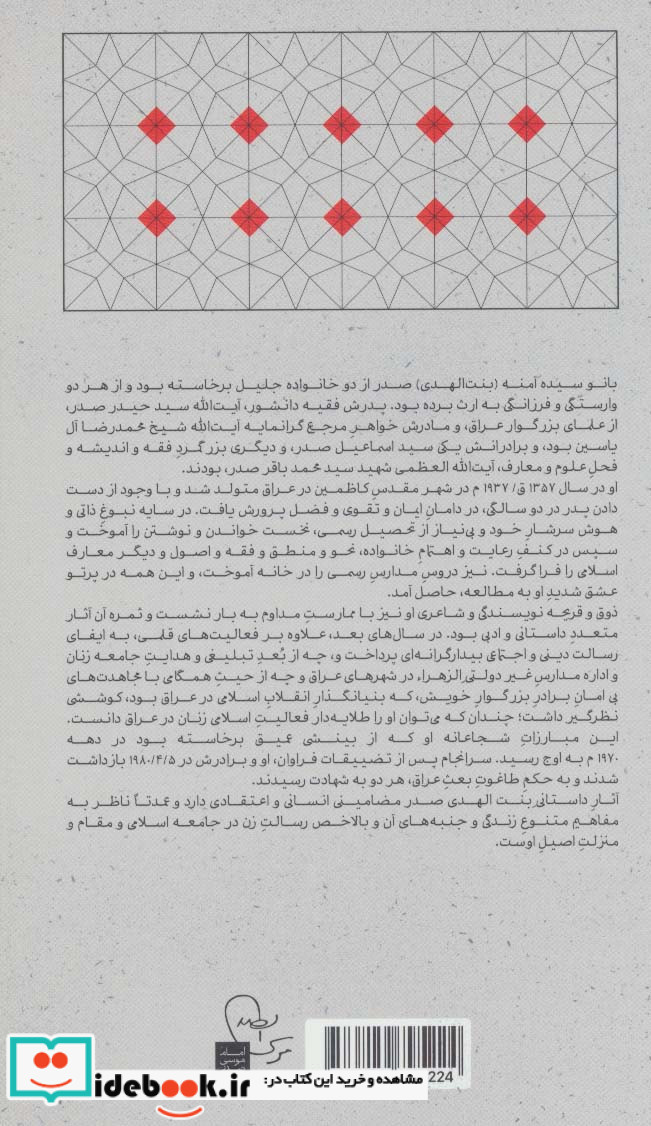 بانو سیده آمنه (بنت‌الهدی) صدر از دو خانواده جلیل برخاسته بود و از هر دو
وارستگی و فرزانگی به ارث برده بود. پدرش فقیه دانشور، آیت‌الله سید حیدر صدر،
از علمای بزرگوار عراق، و مادرش خواهرِ مرجع گرانمایه آیت‌الله شیخ محمدرضا آل
یاسین بود، و برادرانش یکی سید اسماعیل صدر، و دیگری بزرگ گردِ فقه و اندیشه و
فحلِ علوم و معارف، آیت‌الله العظمی شهید سید محمد باقر صدر، بودند.
او در سال ۱۳۵۷ ق/ ۱۹۳۷ م در شهر مقدس کاظمین در عراق متولد شد و با وجود از دست
دادن پدر در دو سالگی، در دامانِ ایمان و تقوی و فضل پرورش یافت. در سایه نبوغِ ذاتی و
هوش سرشارِ خود و بی‌نیاز از تحصیل رسمی، نخست خواندن و نوشتن را آموخت و
سپس در کنفِ رعایت و اهتمامِ خانواده، نحو و منطق و فقه و اصول و دیگر معارف
اسلامی را فرا گرفت. نیز دروسِ مدارس رسمی را در خانه آموخت، و این همه در پرتو
عشق شدیدِ او به مطالعه، حاصل آمد.
ذوق و قریحه نویسندگی و شاعری او نیز با ممارستِ مداوم به بار نشست و ثمره آن آثار
متعددِ داستانی و ادبی بود. در سال‌های بعد، علاوه بر فعالیت‌های قلمی، به ایفای
رسالت دینی و اجتماعیِ بیدارگرانه‌ای پرداخت و، چه از بُعدِ تبلیغی و هدایتِ جامعه زنان
و اداره مدارسِ غیر دولتیِ الزهراء در شهرهای عراق و چه از حیثِ همگامی با مجاهدت‌های
بی امانِ برادرِ بزرگوارِ خویش، که بنیانگذارِ انقلابِ اسلامی در عراق بود، کوششی
نظرگیر داشت؛ چندان که می‌توان او را طلایه‌دار فعالیتِ اسلامی زنان در عراق دانست.
این مبارزاتِ شجاعانه او که از بینشی عمیق برخاسته بود در دهه
۱۹۷۰ م به اوج رسید. سرانجام پس از تضییقات فراوان، او و برادرش در ۱۹۸۰/۴/۵ بازداشت
شدند و به حکمِ طاغوتِ بعثِ عراق، هر دو به شهادت رسیدند.
آثارِ داستانیِ بنت الهدی صدر مضامینی انسانی و اعتقادی دارد و عمدتاً ناظر به
مفاهیم متنوعِ زندگی و جنبه‌های آن و بالاخص رسالتِ زن در جامعه اسلامی و مقام و
منزلتِ اصیلِ اوست.
امام
موسی
224
مشاهده و خرید این کتاب در:
idebook.ir